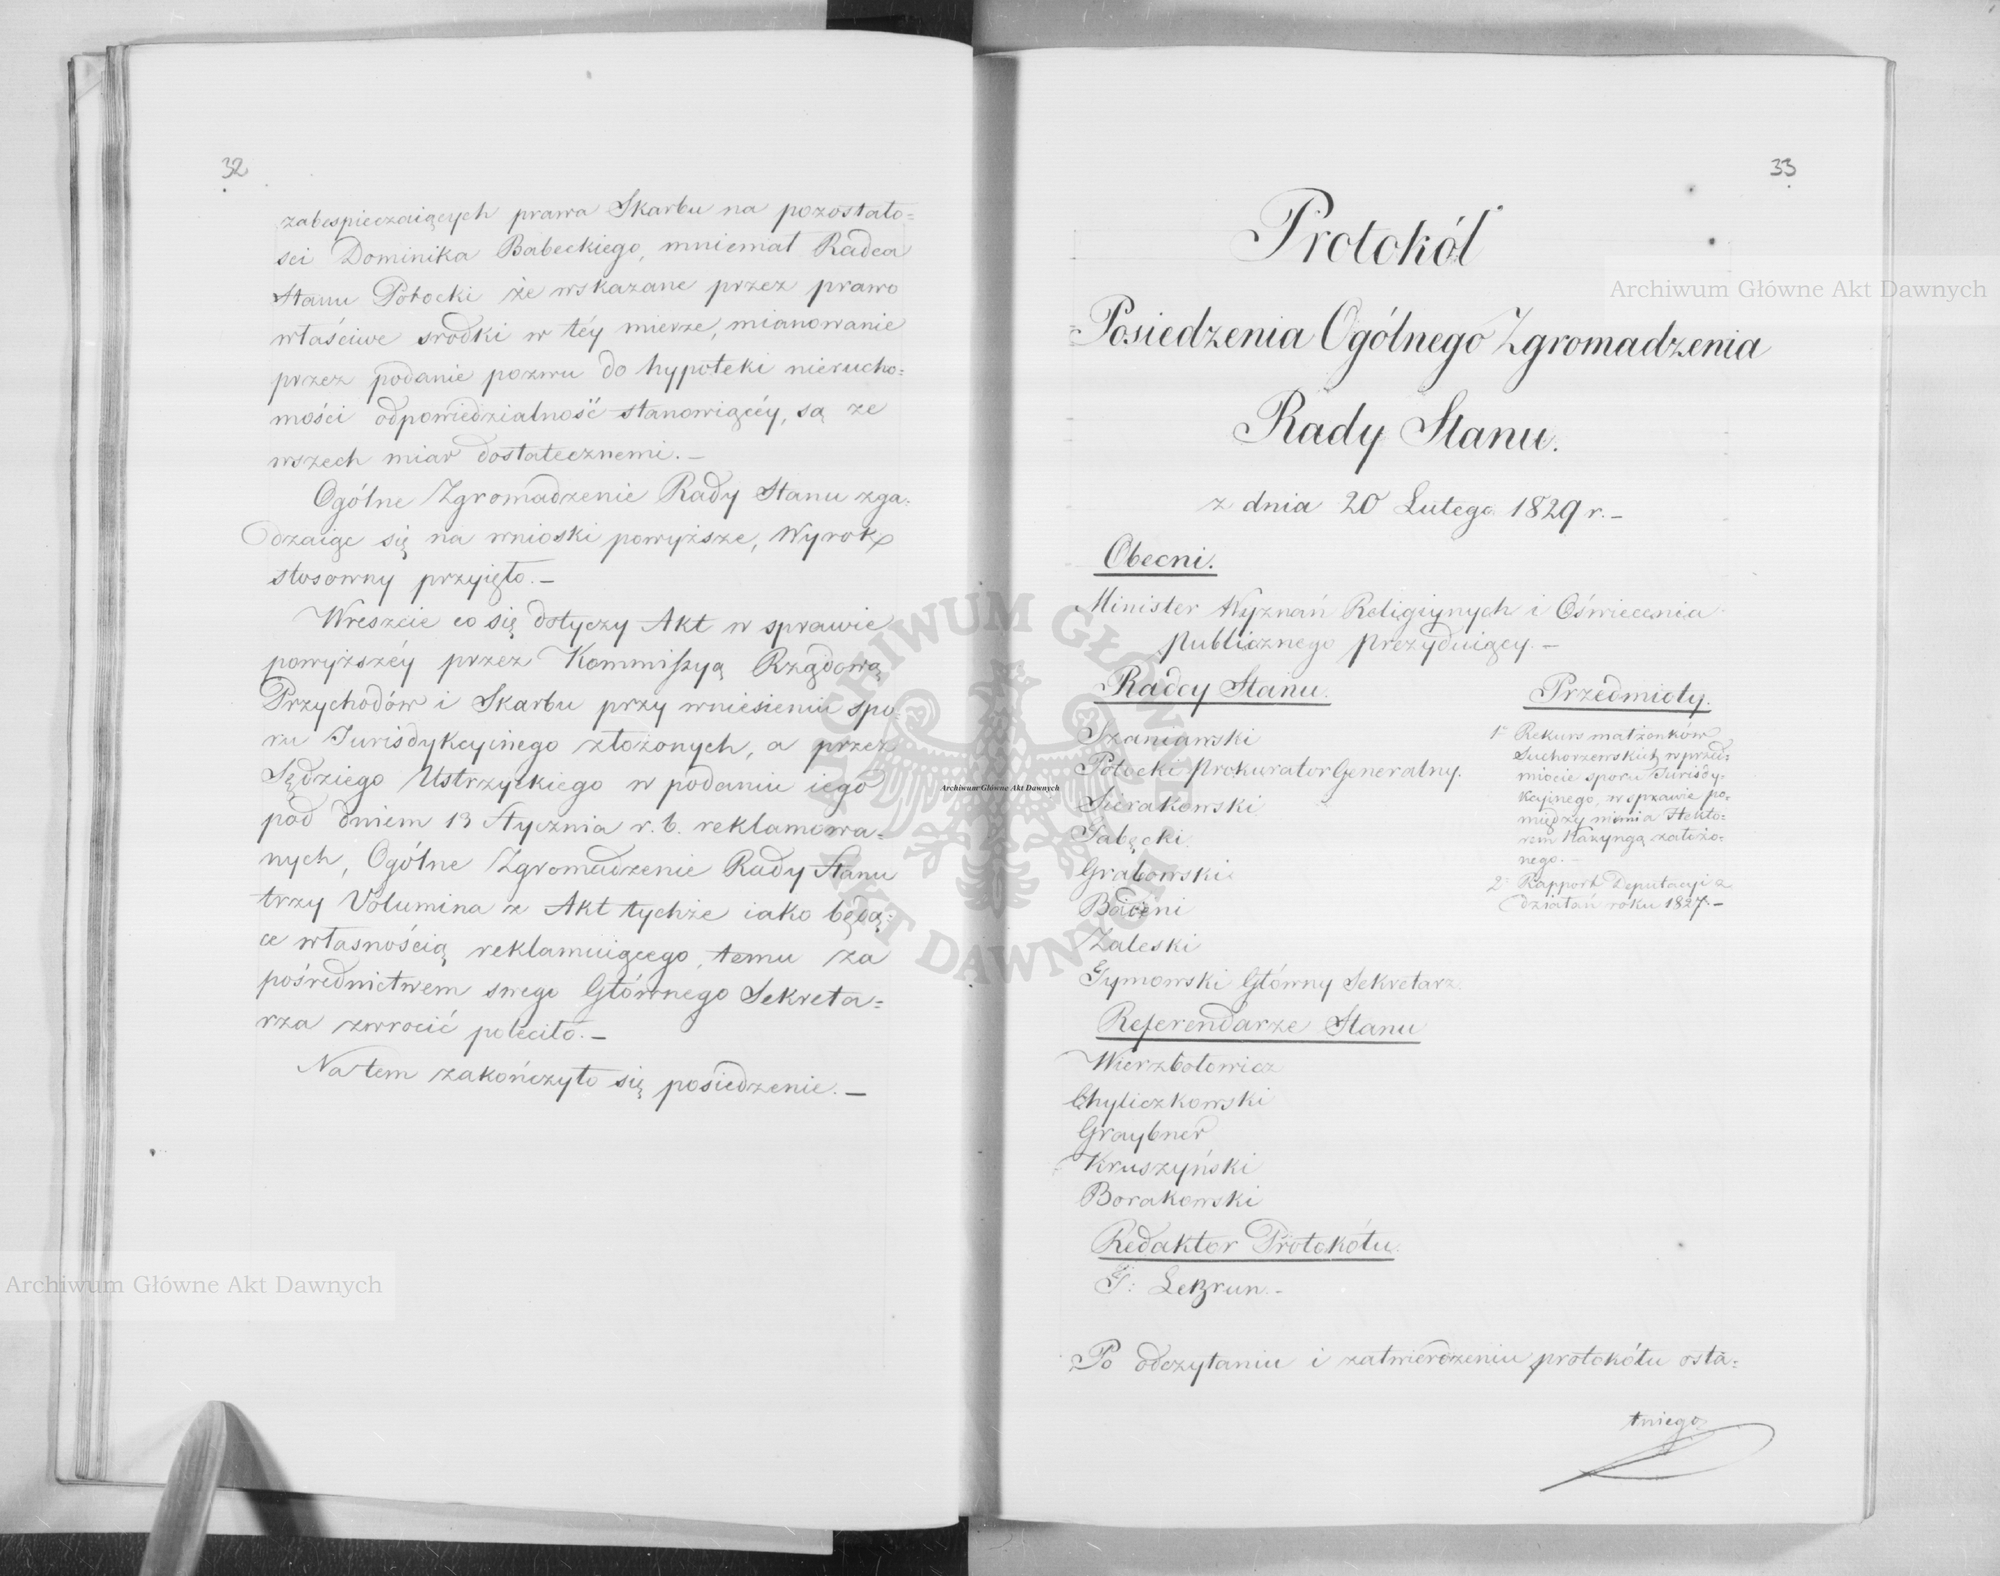 32
zabespieczaiących prawa Skarbu na pozostało=
sci Dominika Babeckiego, mniemał Radca
Stanu Potocki że wskazane przez prawo
właściwe srodki w téy mierze, mianowanie
przez podanie pozwu do hypoteki nierucho=
mości odpowiedzialność stanowiącéy, są ze
wszech miar dostatecznemi. –
Ogólne Zgromadzenie Rady Stanu zga=
dzaiąc się na wnioski powyższe, Wyrok
stosowny przyięło. –
Wreszcie co się dotyczy Akt w sprawie
powyższéy przez Kommissyą Rządową
Przychodów i Skarbu przy wniesieniu spo=
ru Jurisdykcyinego złożonych, a przez
Sędziego Ustrzyckiego w podaniu iego
pod dniem 13 Stycznia r. b. reklamowa=
nych, Ogólne Zgromadzenie Rady Stanu
trzy Volumina z Akt tychże iako będą=
ce własnością reklamuiącego, temu za
pośrednictwem swego Głównego Sekreta=
rza zwrocić poleciło. –
Na tem zakończyło się posiedzenie. –
33
Protokół
Posiedzenia Ogólnego Zgromadzenia
Rady Stanu.
z dnia 20 Lutego 1829 r. –
Obecni.
Minister Wyznań Religiynych i Oświecenia
publicznego prezyduiący. –
Radcy Stanu.
Szaniawski
Potocki Prokurator Generalny.
Sierakowski
Grabowski
Badeni
Zaleski
Tymowski Główny Sekretarz
Referendarze Stanu
Wierzbołowicz
Chyliczkowski
Graybner
Kruszyński
Borakowski
Redaktor Protokółu.
LeBrun. –
Przedmioty.
1° Rekurs małżonków
Suchorzewskich w przed=
miocie sporu Jurisdy=
kcyinego, w sprawie po=
między niemi a Hekto=
rem założo=
nego. –
2° Rapport Deputacyi z
działań roku 1827. –
Po odczytaniu i zatwierdzeniu protokółu osta=
tniego
Archiwum Główne Akt Dawnych
Archiwum Główne Akt Dawnych
Archiwum Główne Akt Dawnych
ARCHIWUM GŁÓWNE
AKT DAWNYCH